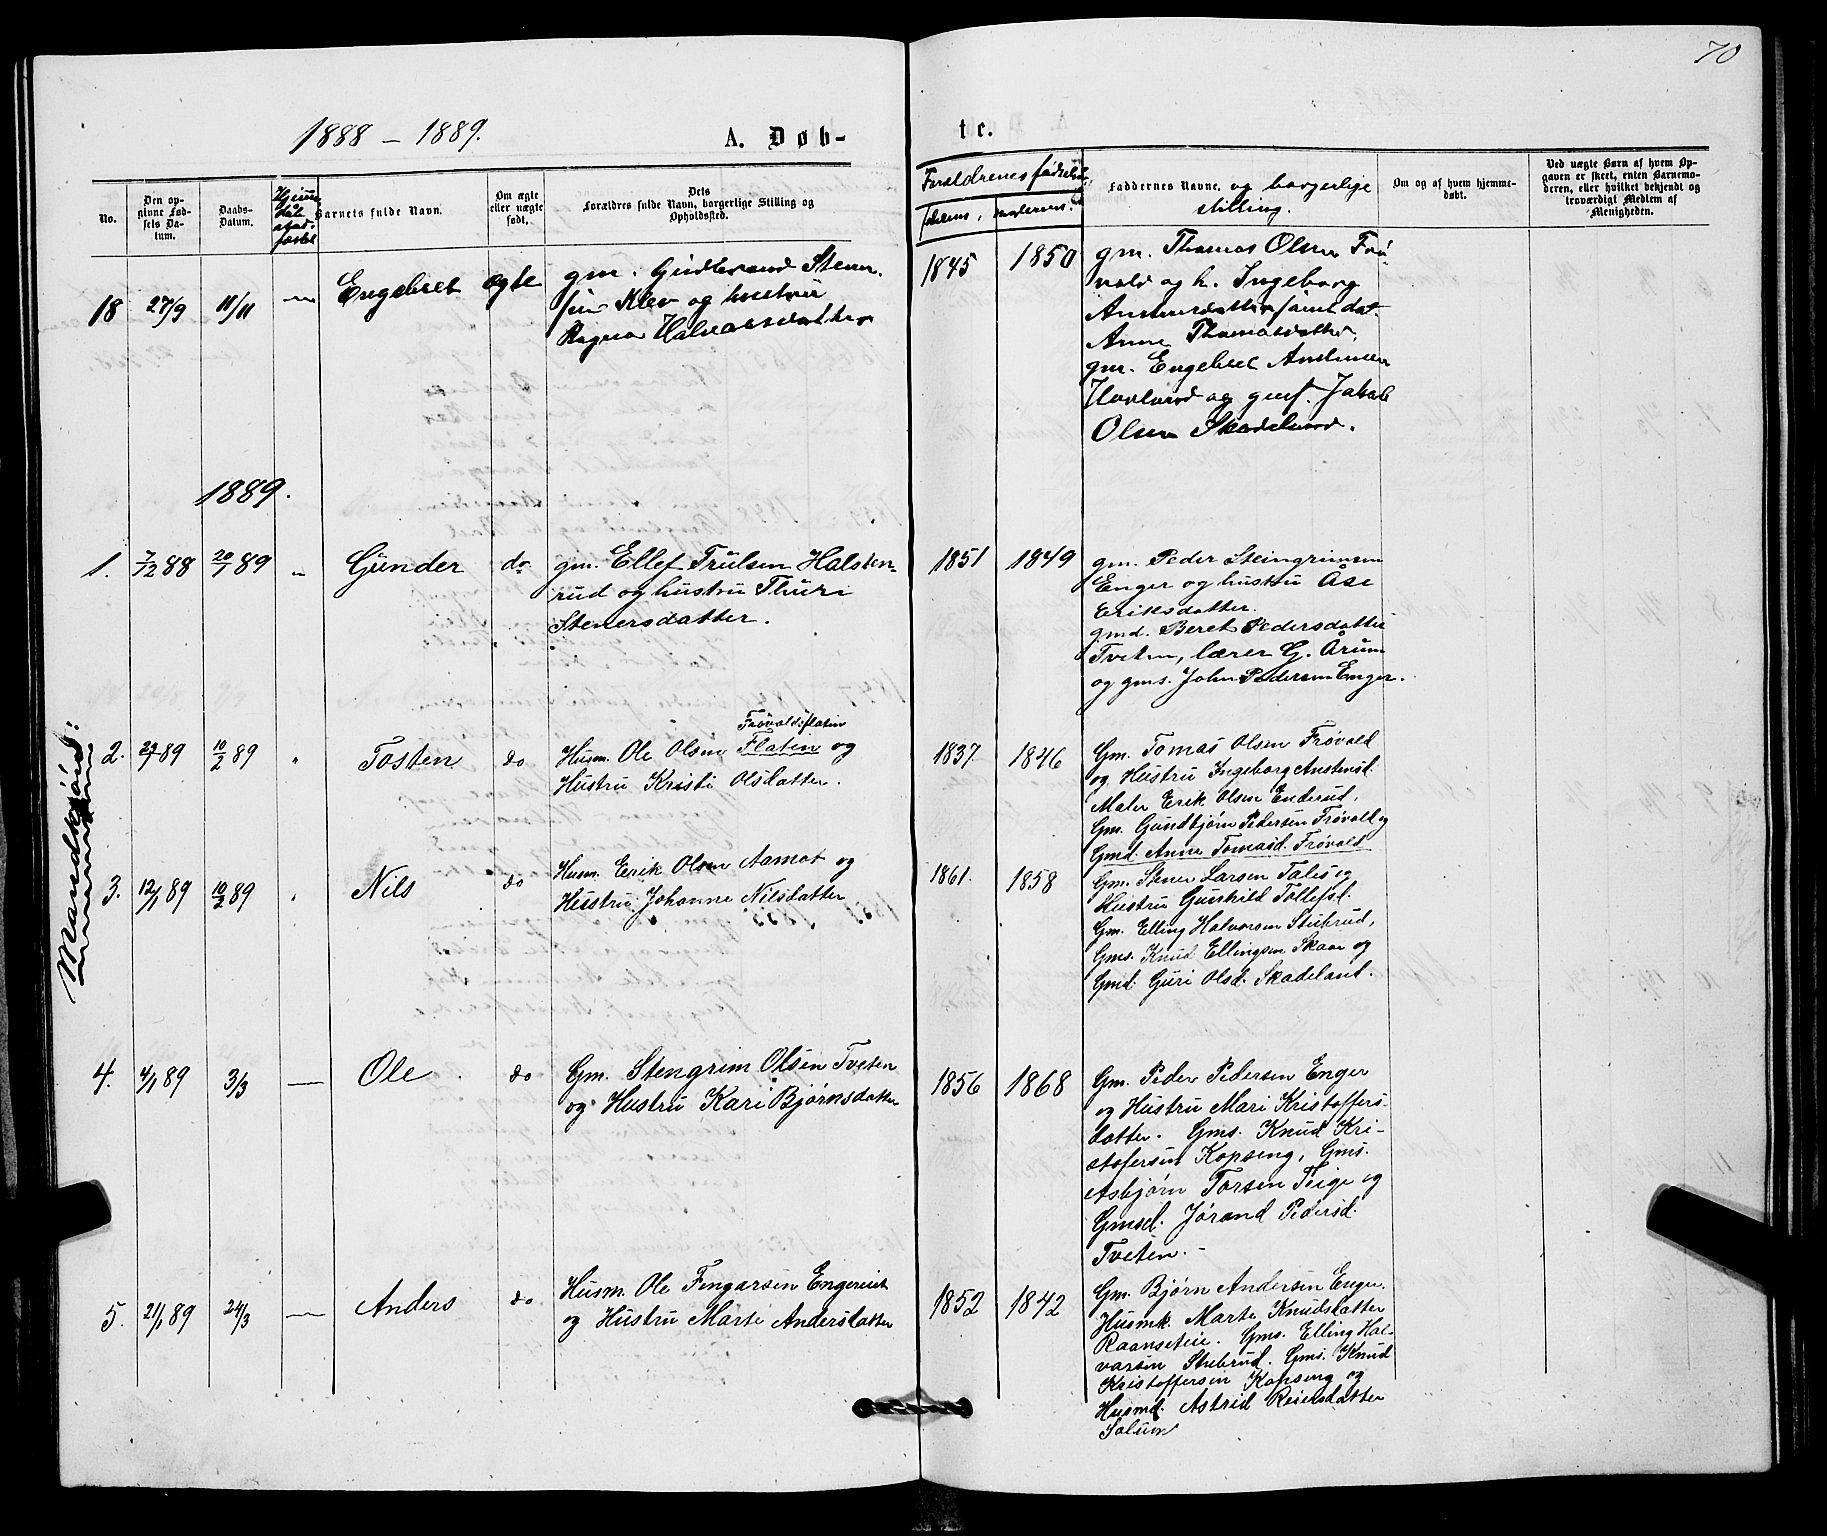 70
1888 – 1889.
A. Døb-
te.
No.
Den op-
givne Fød-
sels Da-
tum.
Daabs-
Datum.
Barnets fulde Navn.
Om ægte
eller uægte
født.
Dets
Forældres fulde Navn, borgerlige Stilling og
Opholdssted.
Forældrenes fødselsa
faderns, moderens.
Faddernes Navne. og borgerlige
stilling.
Om og af hvem hjemme-
døbt.
Ved uægte Børn af hvem Op-
gaven er skeet, enten Barnemo-
deren, eller hvilket bekjendt og
troværdigt Medlem af
Menigheden.
18 27/9 11/11 — Engebret ægte
gm. Gudbrand Stenn-
sen Klev og hustru
Ragna Halvorsdatter
1845 1850
gm. Thomas Olsen Frø-
vold og h. Ingeborg
Anstensdatter samt dat.
Anne Thomasdatter,
gm. Engebret Anstensen
Havlerud og gmf. Jakob
Olsen Skadeland.
1889.
Mandkjön:
1. 7/12 88 20/1 89 „ Gunder do
gm. Ellef Trulsen Halsten-
rud og hustru Thuri
Stenersdatter.
1851 1849
gm. Peder Steingrimsen
Enger og hustru Åse
Eriksdatter.
gmd. Beret Pedersdatter
Tveten, lærer G. Årum
og gms. John Pedersen Enger.
2. 29/1 89 10/2 89 „ Tosten do
Frøvoldsflaten
Husm. Ole Olsen Flaten og
Hustru Kristi Olsdatter.
1837 1846
Gm. Tomas Olsen Frøvold
og Hustru Ingeborg Anstensd.
Maler Erik Olsen Enderud,
Gm. Gundbjørn Pedersen Frøvold og
Gmd. Anne Tomasd. Frøvold
3. 12/1 89 10/2 89 „ Nils do
Husm. Erik Olsen Aamot og
Hustru Johanne Nilsdatter
1861. 1858
Gm. Stener Larsen Tales og
Hustru Gunhild Tollefsd.
Gm. Elling Halvorsen Stubrud,
Gms. Knud Ellingsen Skaar og
Gmd. Guri Olsd. Skadeland.
4. 4/1 89 3/3 — Ole do
Gm. Stengrim Olsen Tveten
og Hustru Kari Bjørnsdatter
1856 1868
Gm. Peder Pedersen Enger
og Hustru Mari Kristoffers-
datter. Gms. Knud Kri-
stofersen Kopseng, Gms.
Asbjørn Torsen Teige og
Gmsd. Jørand Pedersd.
Tveten. –
5. 21/1 89 24/3 — Anders do
Husm. Ole Fingarsen Engereiet
og Hustru Marte Andersdatter
1852 1842
Gm. Bjørn Andersen Enger.
Husmk. Marte Knudsdatter
Raanseteie. Gms. Elling Hal-
varsen Stubrud. Gms. Knud
Kristoffersen Kopseng og
Husmd. Astrid Reiersdatter
Solum